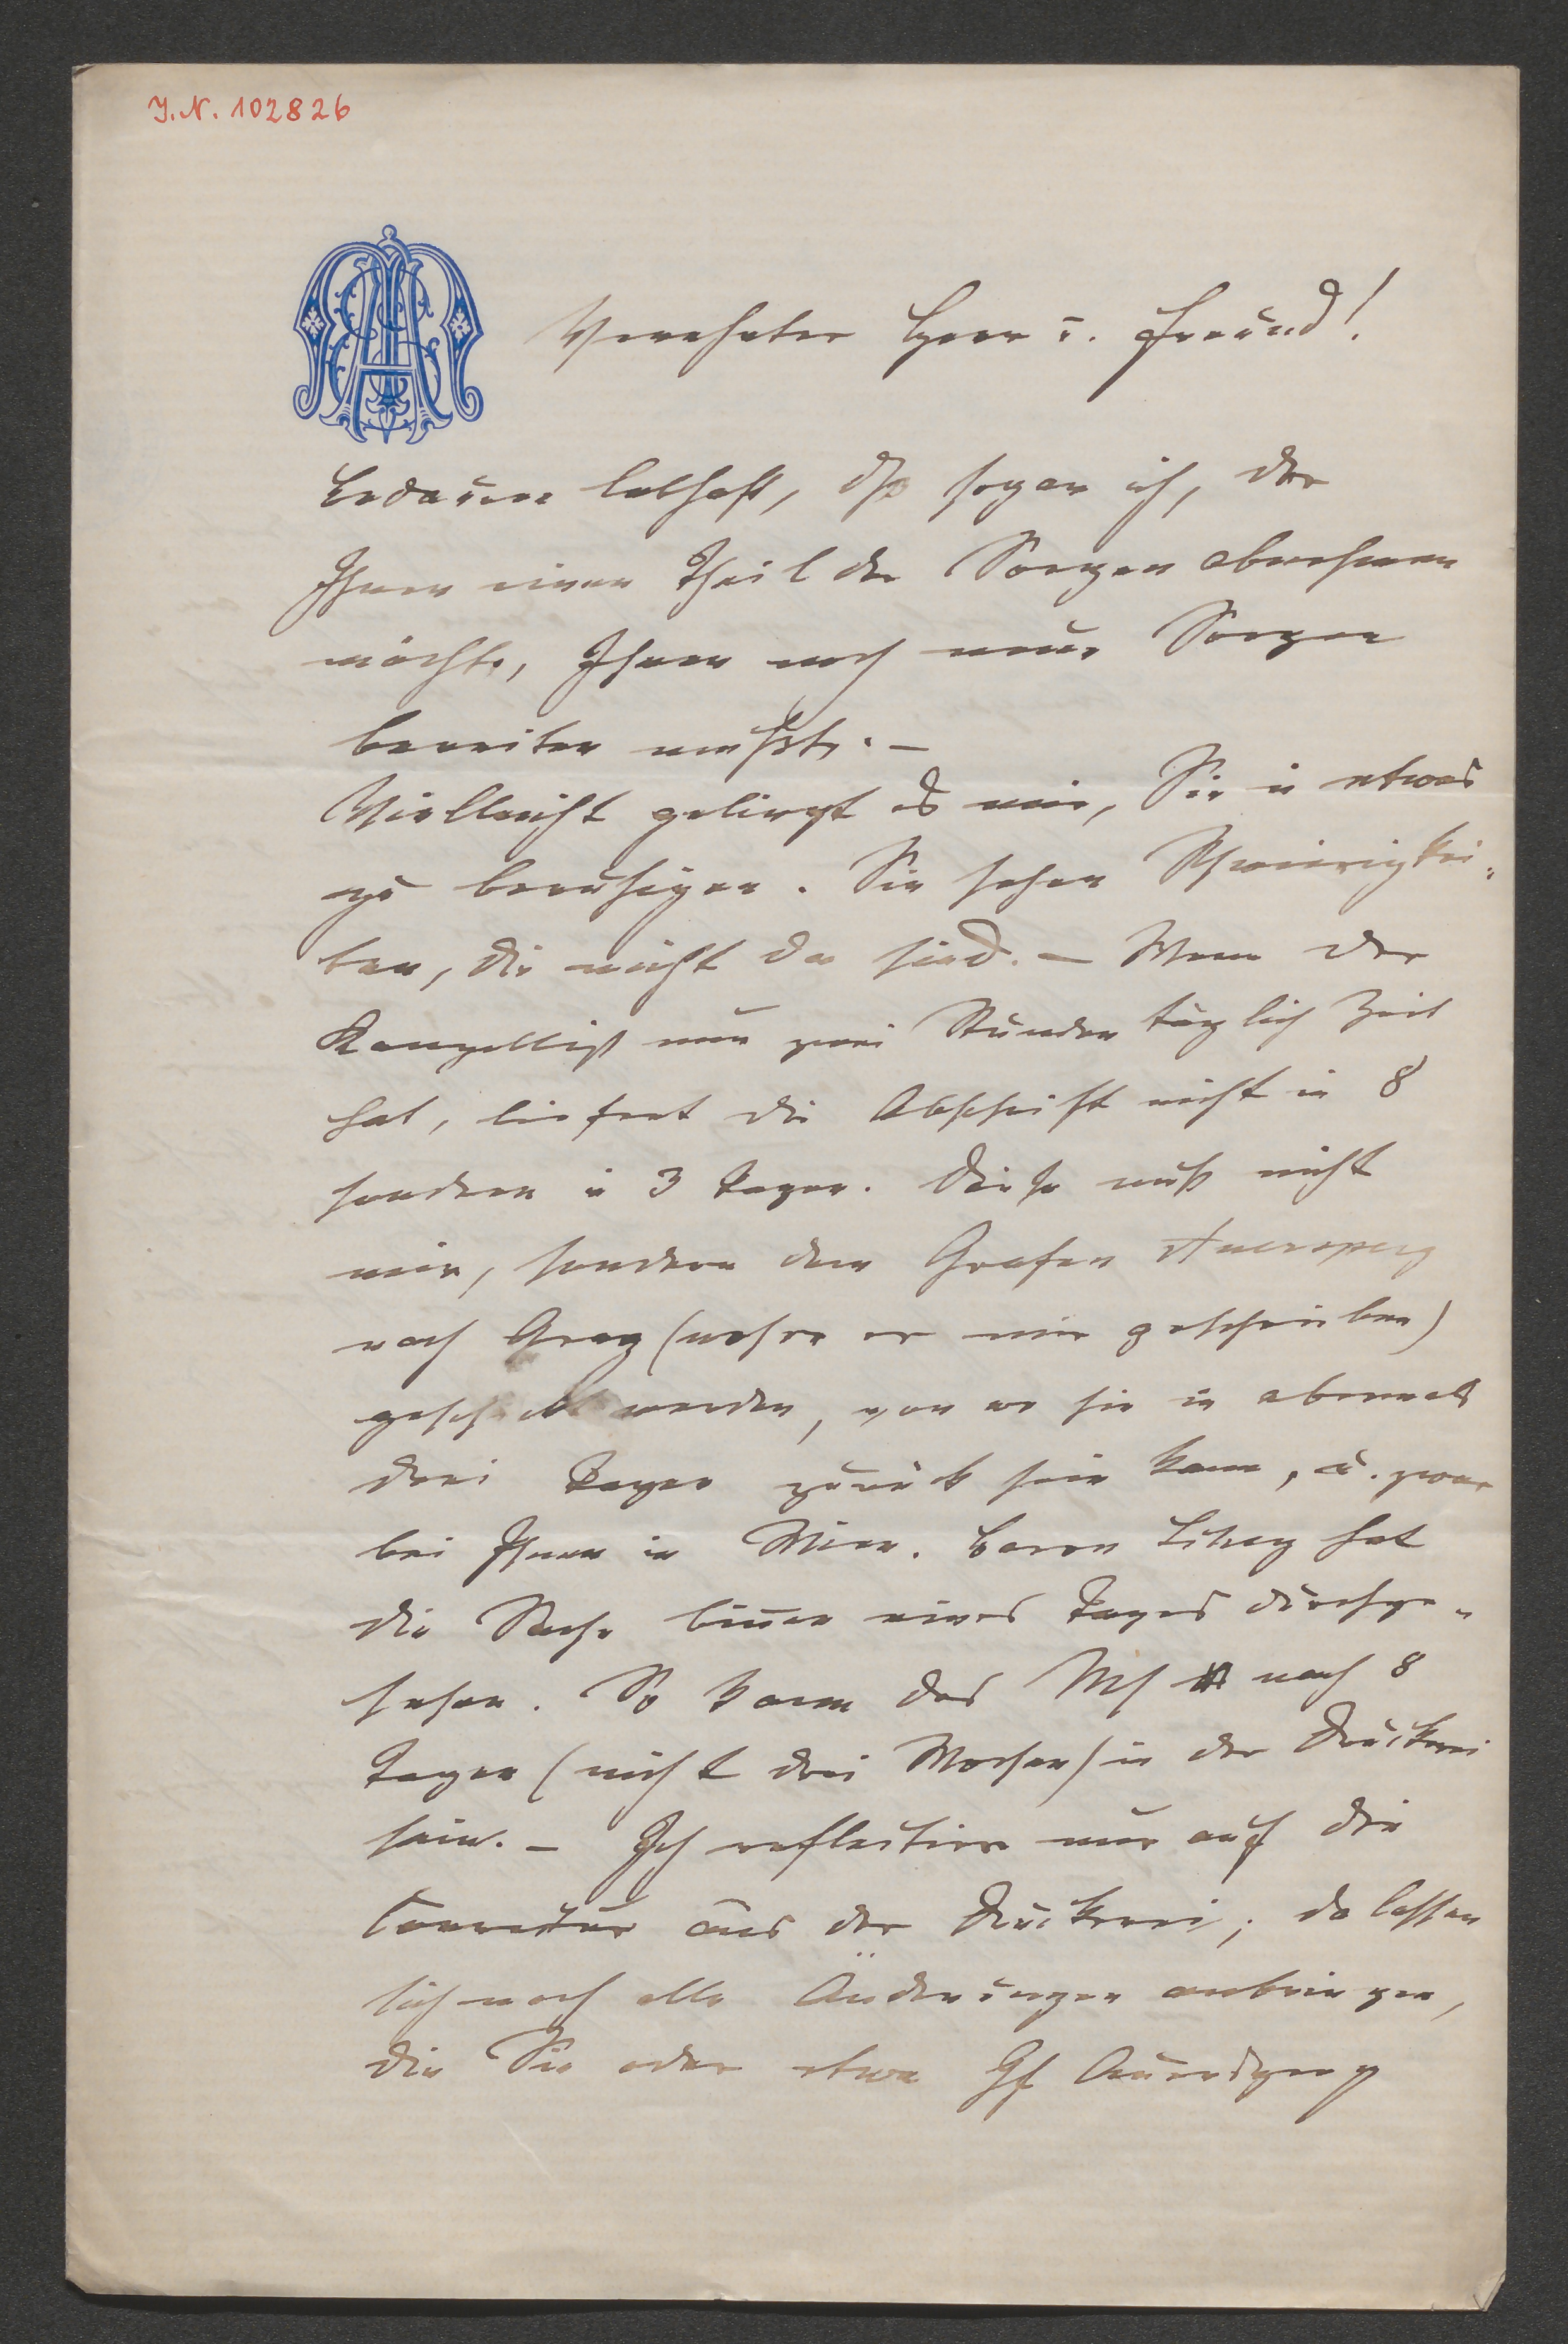 J.N. 102826
Verehrter Herr u. Freund!
Bedauere lebhaft, dß sogar ich, der
Ihnen einen Theil der Sorgen abnehmen
möchte, Ihnen noch neue Sorgen
bereiten mußte. –
Vielleicht gelingt es mir, Sie in etwas
zu beruhigen. Sie sehen Schwierigkei-
ten, die nicht da sind. – Wenn der
Kanzellist nur zwei Stunden täglich Zeit
hat, liefert die Abschrift nicht in 8
sondern in 3 Tagen. Diese muß nicht
mir, sondern dem Grafen Auersperg
nach Graz (woher er mir geschrieben)
geschickt werden, von wo sie in abermals
drei Tagen zurück sein kann, u. zwar
bei Ihnen in Wien. Baron hat
die Sache binnen eines Tages durchge-
sehen. So kann das Ms nach 8
Tagen (nicht drei Wochen) in der Druckerei
sein. – Ich reflectire nur auf die
Correctur aus der Druckerei; da lassen
sich noch alle Änderungen anbringen,
die Sie oder etwa Gf Auersperg